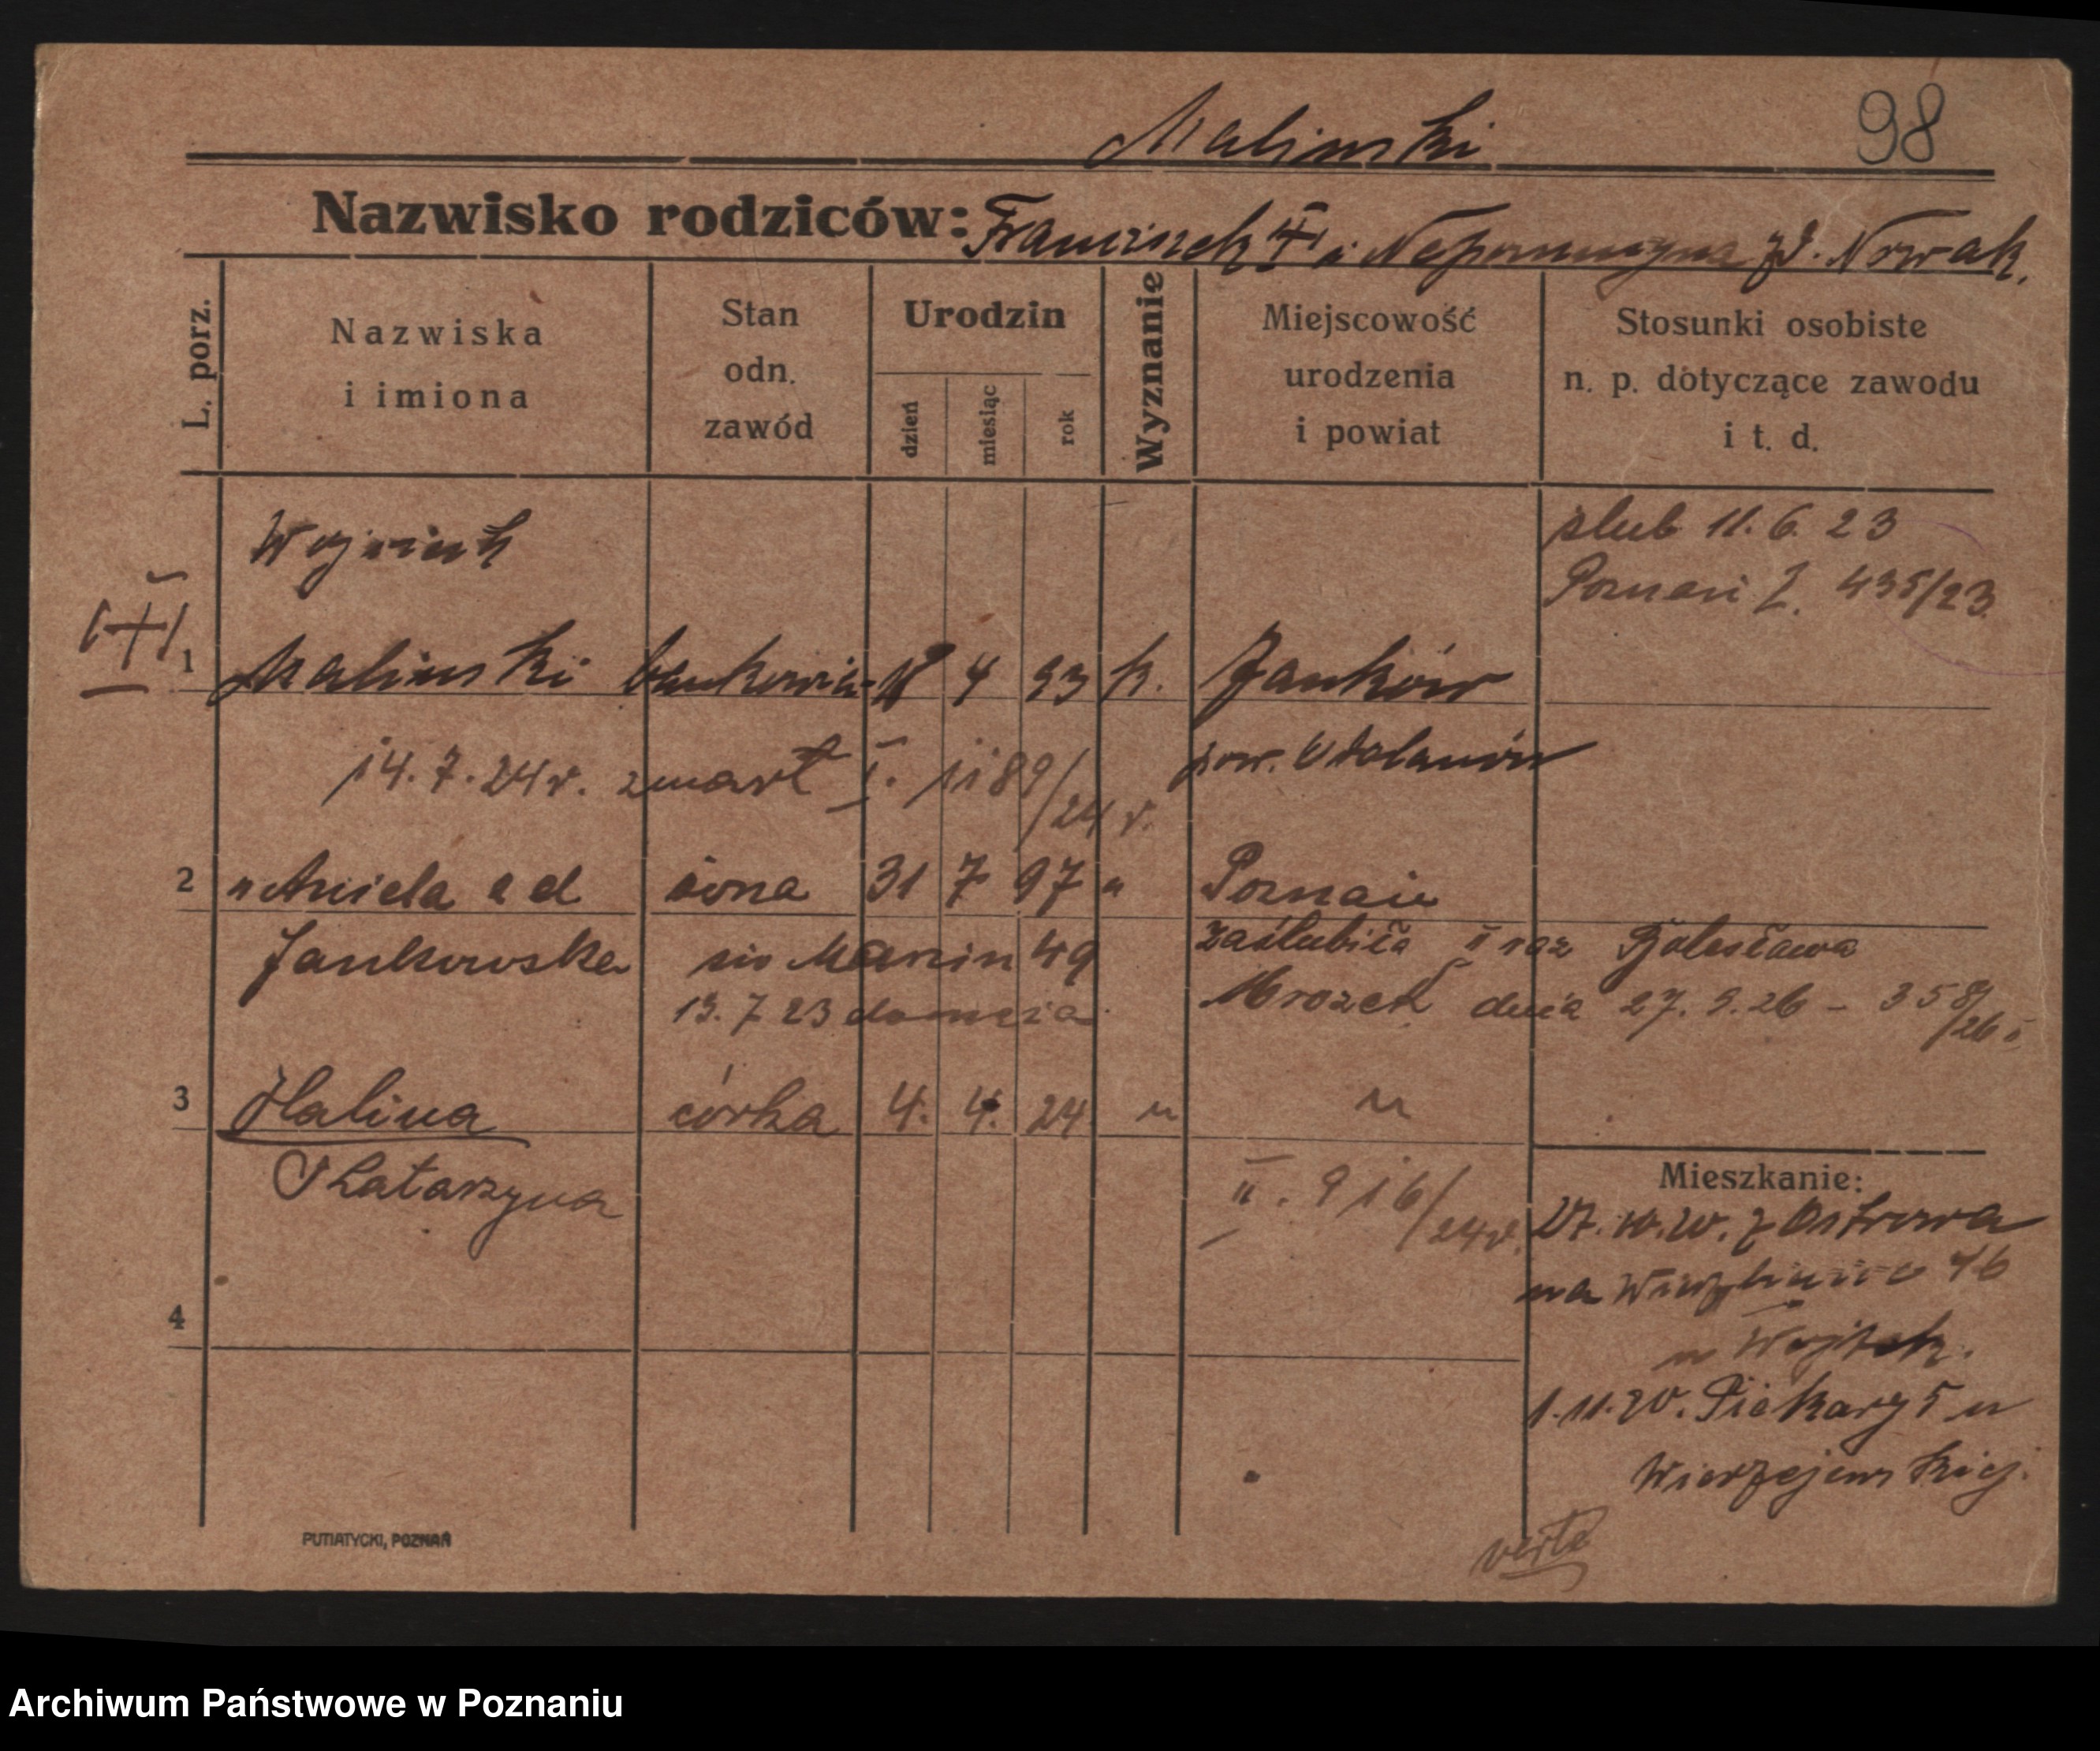 98
Malinski
Nazwisko rodziców: Franciszek i Nepomucyna zd. Nowak.
L. porz.
Nazwiska i imiona
Stan odn. zawód
Urodzin
dzień
miesiąc
rok
Wyznanie
Miejscowość urodzenia i powiat
Stosunki osobiste n. p. dotyczące zawodu i t. d.
Wojciech
ślub 11. 6. 23
Poznań I. 435/23
1 Malinski 4 93 k. Janków
14. 7. 24 r. zmarł I. 1189/24 r.
pow. Odolanów
2 " Aniela żona 31 7 97 " Poznań
Jankowska
zaślubiła II raz Bolesława
13. 7 23 do męża
Mrozek dnia 27. 9. 26 - 358/26
3 Halina córka 4. 4. 24 " "
Katarzyna
II. 916/24 r.
Mieszkanie:
z Ostrowa
na 46
u Wojtek.
4
1. 11. 20. Piekary 5 u
Wierzejewskiej.
verte
PUTIATYCKI, POZNAŃ
Archiwum Państwowe w Poznaniu